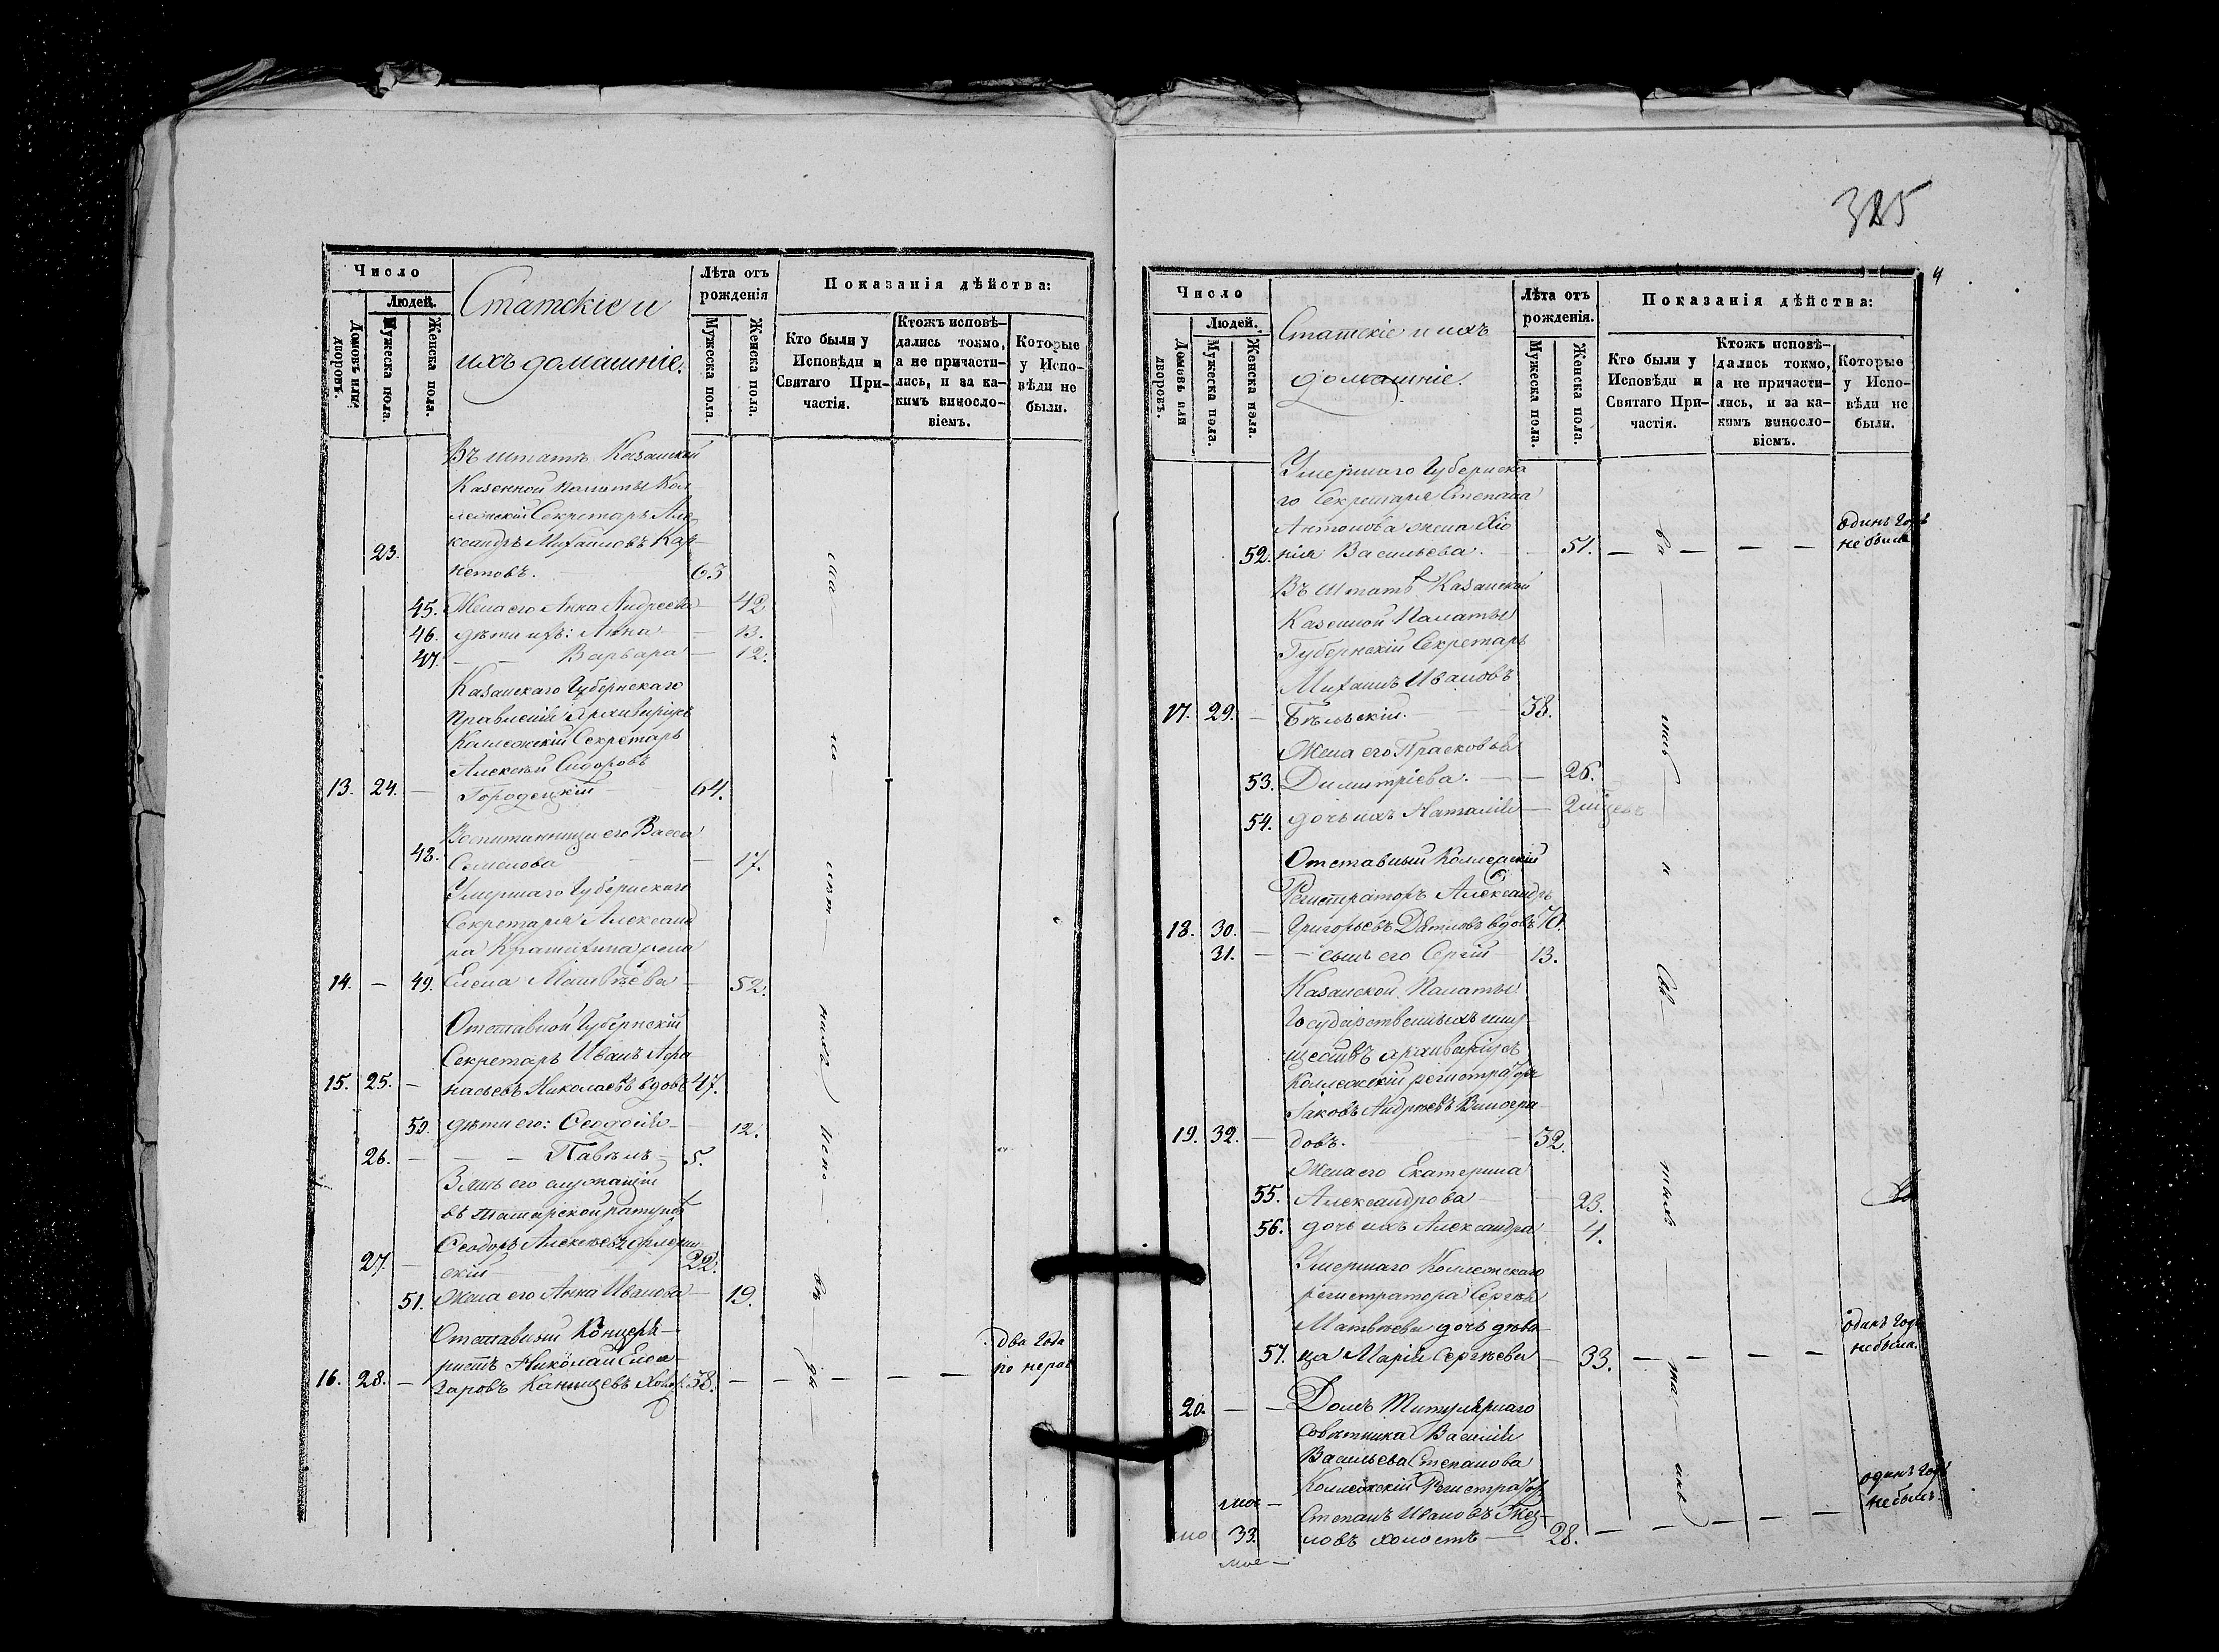 Число
Людей.
Домовъ или дворовъ.
Мужеска пола.
Женска пола.
Статскіе и
ихъ домашніе.
Лѣта отъ
рожденія
Мужеска пола.
Женска пола.
Показанія дѣйства:
Кто были у
Исповѣди и
Святаго При-
частія.
Ктожъ исповѣ-
дались токмо,
а не причасти-
лись, и за ка-
кимъ винosло-
віемъ.
Которые
у Испо-
вѣди не
были.
Въ штатѣ Казанской
Казенной палаты Кол
лежскій Секретарь Але
ксандръ Михайловъ Кар
23. нетовъ. 63
45. Жена его Анна Андреева 42
46. дѣти ихъ: Анна — 13.
47. — — Варвара — 12.
Казанскаго Губернскаго
Правленія Архиваріусъ
Коллежскій Секретарь
Алексѣй Сидоровъ
13. 24. — Городецкій — 64.
Воспитанница его Васса
48. Семенова — 17.
Умершаго Губернскаго
Секретаря Александ
ра жена
14. — 49. Елена Матвѣева — 52.
Отставной Губернскій
Секретарь Иванъ Афа
15. 25. — насьевъ Николаевъ вдовъ 47.
50. дѣти его: Ѳеодосія — 12.
26. — — — Павелъ — 5.
Зять его служащій
въ татарской ратушѣ
Ѳеодоръ Алексѣевъ
27. — скій 22.
51. Жена его Анна Иванова — 19.
Отставный Канцеля-
ристъ Николай Елеа-
16. 28. — заровъ Канищевъ холос. 38. — — — — —
два года
по нерад
325
4
Число
Людей.
Домовъ или дворовъ.
Мужеска пола.
Женска пола.
Статскіе и ихъ
домашніе.
Лѣта отъ
рожденія.
Мужеска пола.
Женска пола.
Показанія дѣйства:
Кто были у
Исповѣди и
Святаго При-
частія.
Ктожъ исповѣ-
дались токмо,
а не причасти-
лись, и за ка-
кимъ виносло-
віемъ.
Которые
у Испо-
вѣди не
были.
Умершаго Губернска
го Секретаря Степана
Антонова жена Хіо
52. нія Васильева. — 51. — — — —
одинъ годъ
не была
Въ Штатѣ Казанской
Казенной Палаты
Губернскій Секретарь
Михаилъ Ивановъ
17. 29. — Бѣльскій. — — 38.
Жена его Прасковья
53. Димитріева. — — 26.
54. дочь ихъ Наталія — 2 мѣсяц
Отставный Коллежскій
Регистраторъ Александръ
18. 30. — Григорьевъ Дятловъ вдовъ 70.
31. — — сынъ его Сергій — 13.
Казанской Палаты
Государственныхъ иму
ществъ архиваріусъ
Коллежскій регистраторъ
Іаковъ Андреевъ Виногра
19. 32. — довъ. — 32.
Жена его Екатерина
55. Александрова — 23.
56. дочь ихъ Александра 4.
Умершаго Коллежскаго
регистратора Сергѣя
Матвѣева дочь дѣви
57. ца Марія Сергѣева — 33. — — — —
одинъ годъ
не была.
20. — — Домъ Титулярнаго
Совѣтника Василія
Васильева Степанова
Коллежскій Регистраторъ
Степанъ Ивановъ
33. новъ холостъ — 28. — — — — —
одинъ годъ
не былъ.